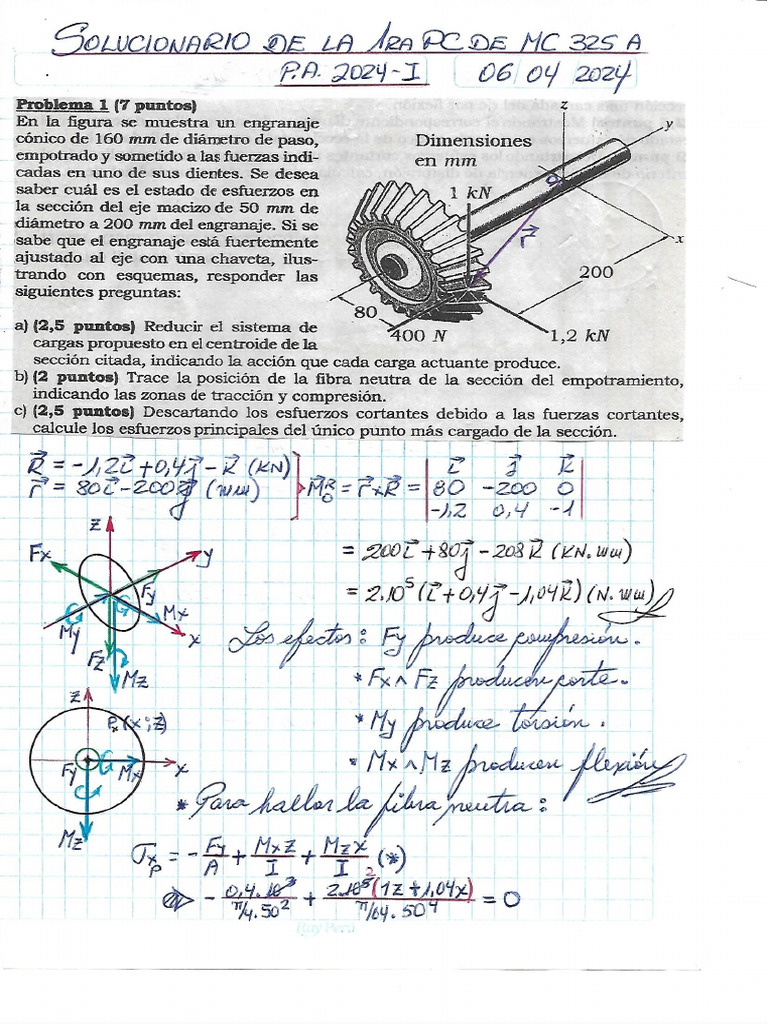 SOLUCIONARIO DE LA 1RA PC DE MC 325 A
P.A. 2024-I 06/04/2024
Problema 1 (7 puntos)
En la figura se muestra un engranaje
cónico de 160 mm de diámetro de paso,
empotrado y sometido a las fuerzas indi-
cadas en uno de sus dientes. Se desea
saber cuál es el estado de esfuerzos en
la sección del eje macizo de 50 mm de
diámetro a 200 mm del engranaje. Si se
sabe que el engranaje está fuertemente
ajustado al eje con una chaveta, ilus-
trando con esquemas, responder las
siguientes preguntas:
Dimensiones
en mm
z
y
x
O
r⃗
1 kN
200
80
400 N
1,2 kN
a) (2,5 puntos) Reducir el sistema de
cargas propuesto en el centroide de la
sección citada, indicando la acción que cada carga actuante produce.
b) (2 puntos) Trace la posición de la fibra neutra de la sección del empotramiento,
indicando las zonas de tracción y compresión.
c) (2,5 puntos) Descartando los esfuerzos cortantes debido a las fuerzas cortantes,
calcule los esfuerzos principales del único punto más cargado de la sección.
R⃗ = -1,2i⃗ + 0,4j⃗ - k⃗ (KN)
r⃗ = 80i⃗ - 200j⃗ (mm)
M⃗ᴿₒ = r⃗ x R⃗ =
i⃗ j⃗ k⃗
80 -200 0
-1,2 0,4 -1
= 200i⃗ + 80j⃗ - 208k⃗ (KN.mm)
= 2.10⁵ (i⃗ + 0,4j⃗ - 1,04k⃗) (N.mm)
z
Fx
y
Fy
Mx
My
x
Fz
Mz
Los efectos: Fy produce compresión.
* Fx ∧ Fz producen corte.
* My produce torsión.
* Mx ∧ Mz producen flexión
z
P(x;z)
Fy
Mx
x
Mz
* Para hallar la fibra neutra:
σxP = - Fy/A + Mx z/I + Mz x/I (*)
⇔ - 0,4.10³/(π/4.50²) + 2.10⁵(1z + 1,04x)/(π/64.50⁴) = 0
Ray Perú